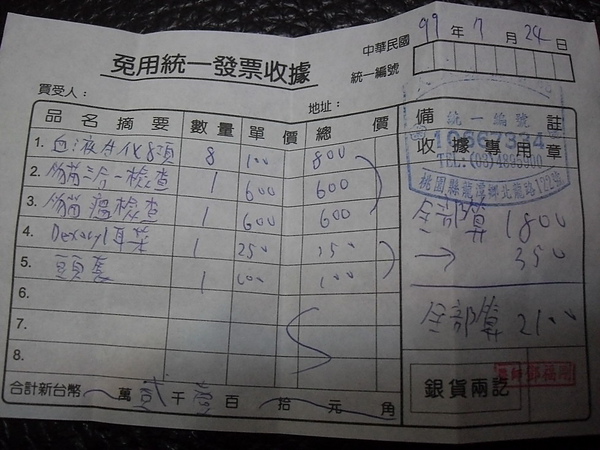 中華民國 99 年 7 月 24 日
免用統一發票收據
統一編號
買受人：
地址：
品名摘要 數量 單價 總價 備註
統一編號
收據專用章
桃園縣龍潭鄉北龍路122號
1. 血液生化8項 8 100 800
2. 三合一檢查 1 600 600
3. 檢查 1 600 600
4. 耳藥 1 250 250
5. 頭套 1 100 100
6.
7.
8.
全部算 1800
→ 350
全部算 2100
合計新台幣 萬 貳 千 壹 百 拾 元 角
銀貨兩訖